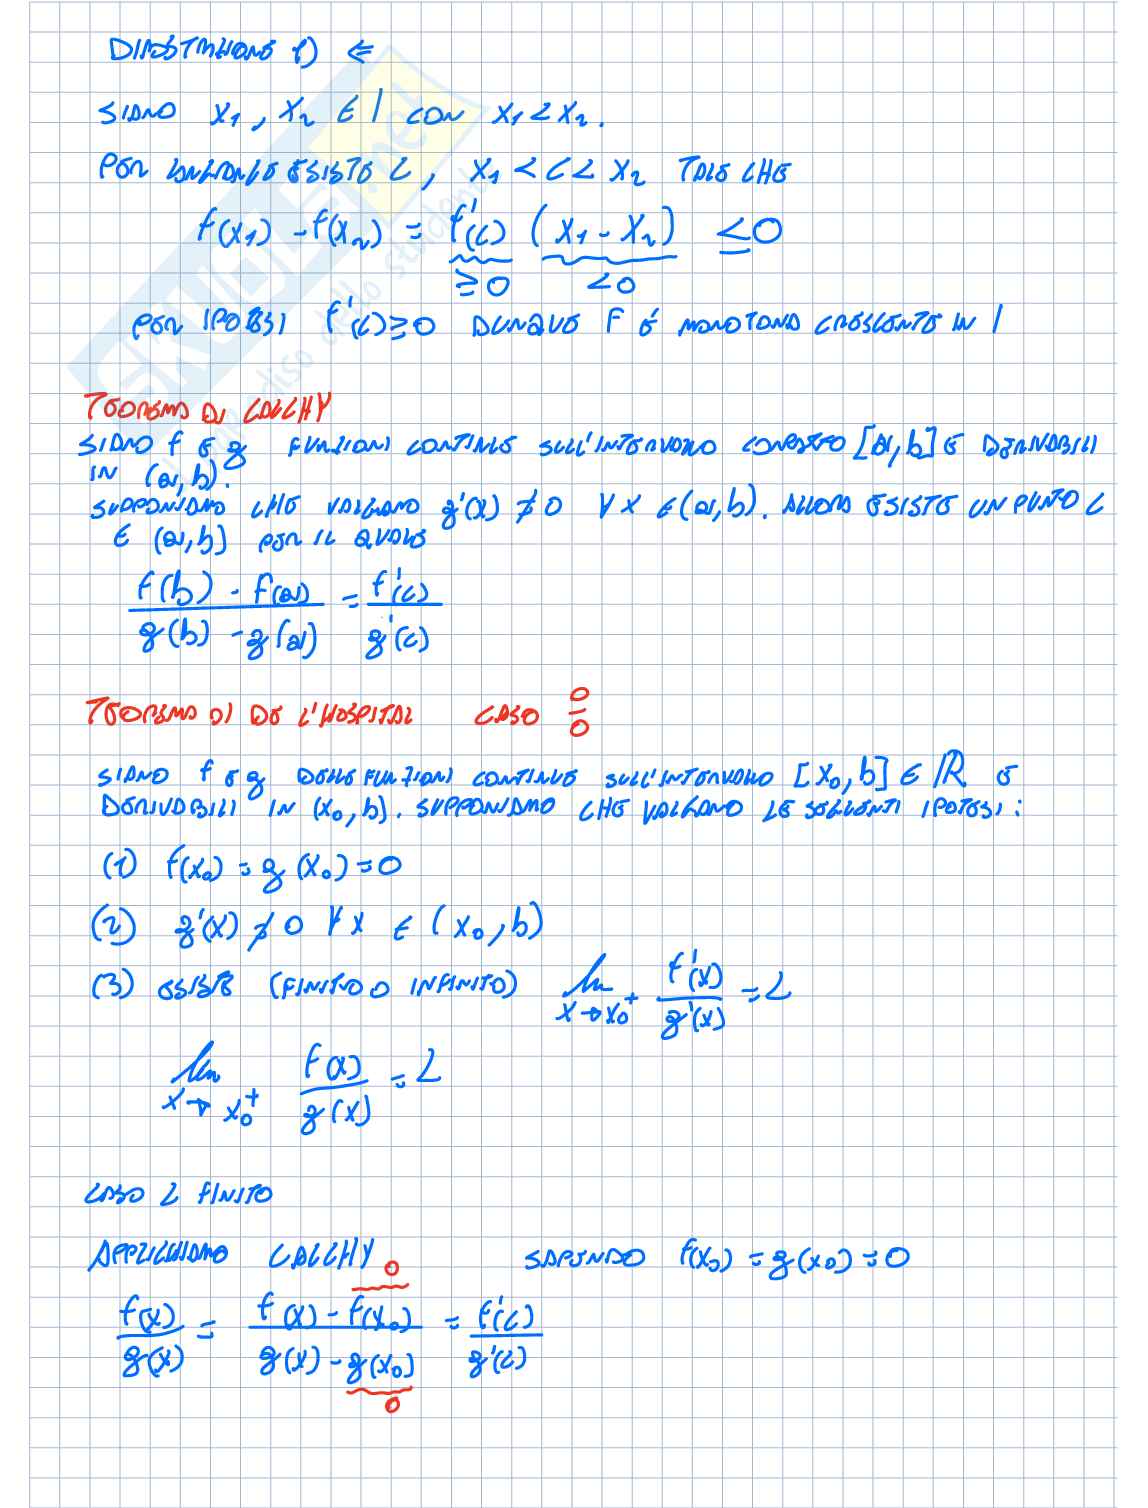 DIMOSTRAZIONE 1) ⇐
SIANO x₁, x₂ ∈ I CON x₁ < x₂.
PER LAGRANGE ESISTE C, x₁ < C < x₂ TALE CHE
f(x₁) - f(x₂) = f'(c) (x₁ - x₂) ≤ 0
≥ 0 < 0
PER IPOTESI f'(c) ≥ 0 DUNQUE F É MONOTONA CRESCENTE IN I
TEOREMA DI CAUCHY
SIANO f E g FUNZIONI CONTINUE SULL'INTERVALLO COMPATTO [a, b] E DERIVABILI
IN (a, b).
SUPPONIAMO CHE VALGANO g'(x) ≠ 0 ∀ x ∈ (a, b). ALLORA ESISTE UN PUNTO C
∈ (a, b) PER IL QUALE
f(b) - f(a) / g(b) - g(a) = f'(c) / g'(c)
TEOREMA DI DE L'HOSPITAL CASO 0/0
SIANO f E g DELLE FUNZIONI CONTINUE SULL'INTERVALLO [x₀, b] ∈ ℝ E
DERIVABILI IN (x₀, b). SUPPONIAMO CHE VALGANO LE SEGUENTI IPOTESI:
(1) f(x₀) = g(x₀) = 0
(2) g'(x) ≠ 0 ∀ x ∈ (x₀, b)
(3) ESISTE (FINITO O INFINITO) lim x→x₀⁺ f'(x) / g'(x) = L
lim x→x₀⁺ f(x) / g(x) = L
CASO L FINITO
APPLICHIAMO CAUCHY SAPENDO f(x₀) = g(x₀) = 0
0
f(x) / g(x) = f(x) - f(x₀) / g(x) - g(x₀) = f'(c) / g'(c)
0